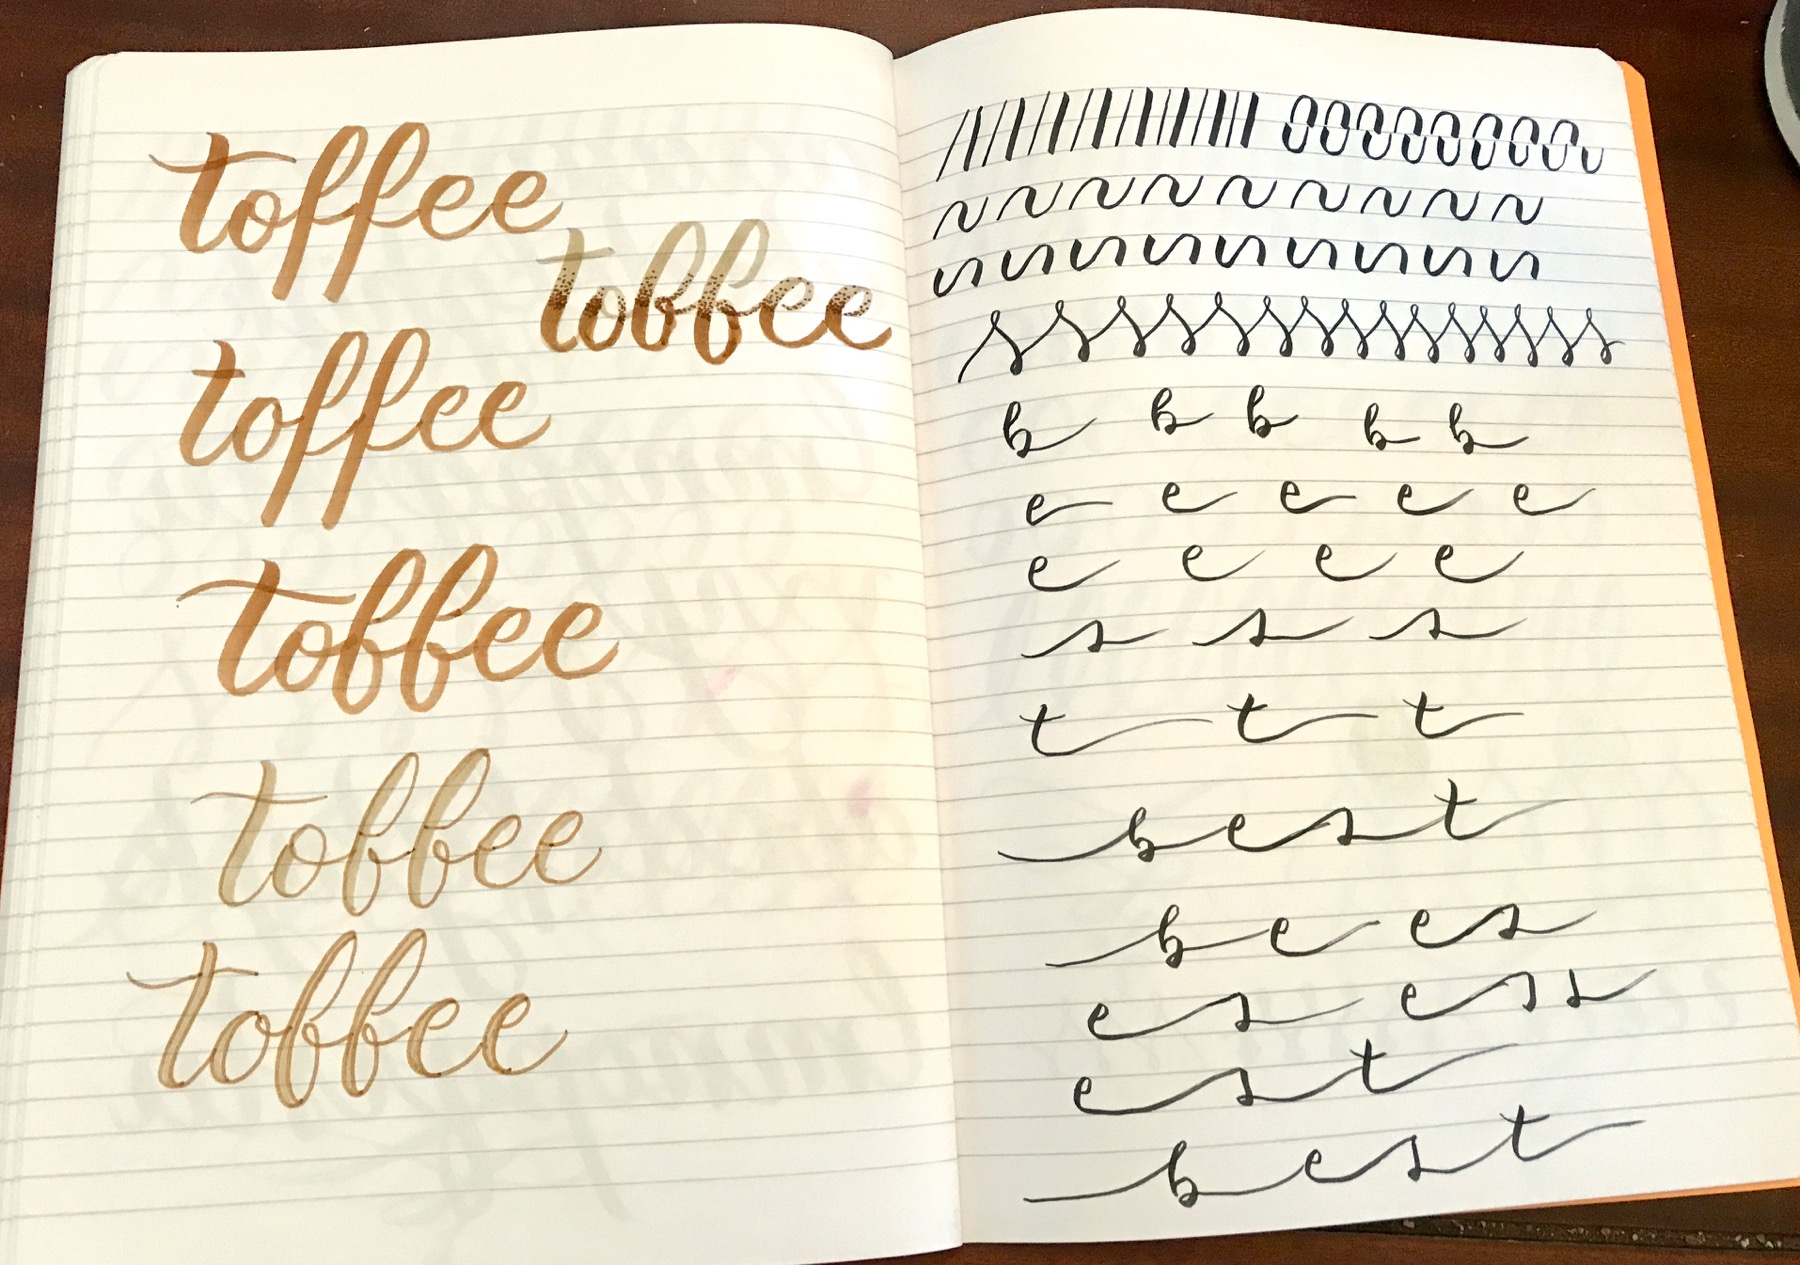 toffee
toffee
toffee
toffee
toffee
toffee
b b b b b
e e e e e
e e e e
s s s
t t t
best
be es
es ess
est
best